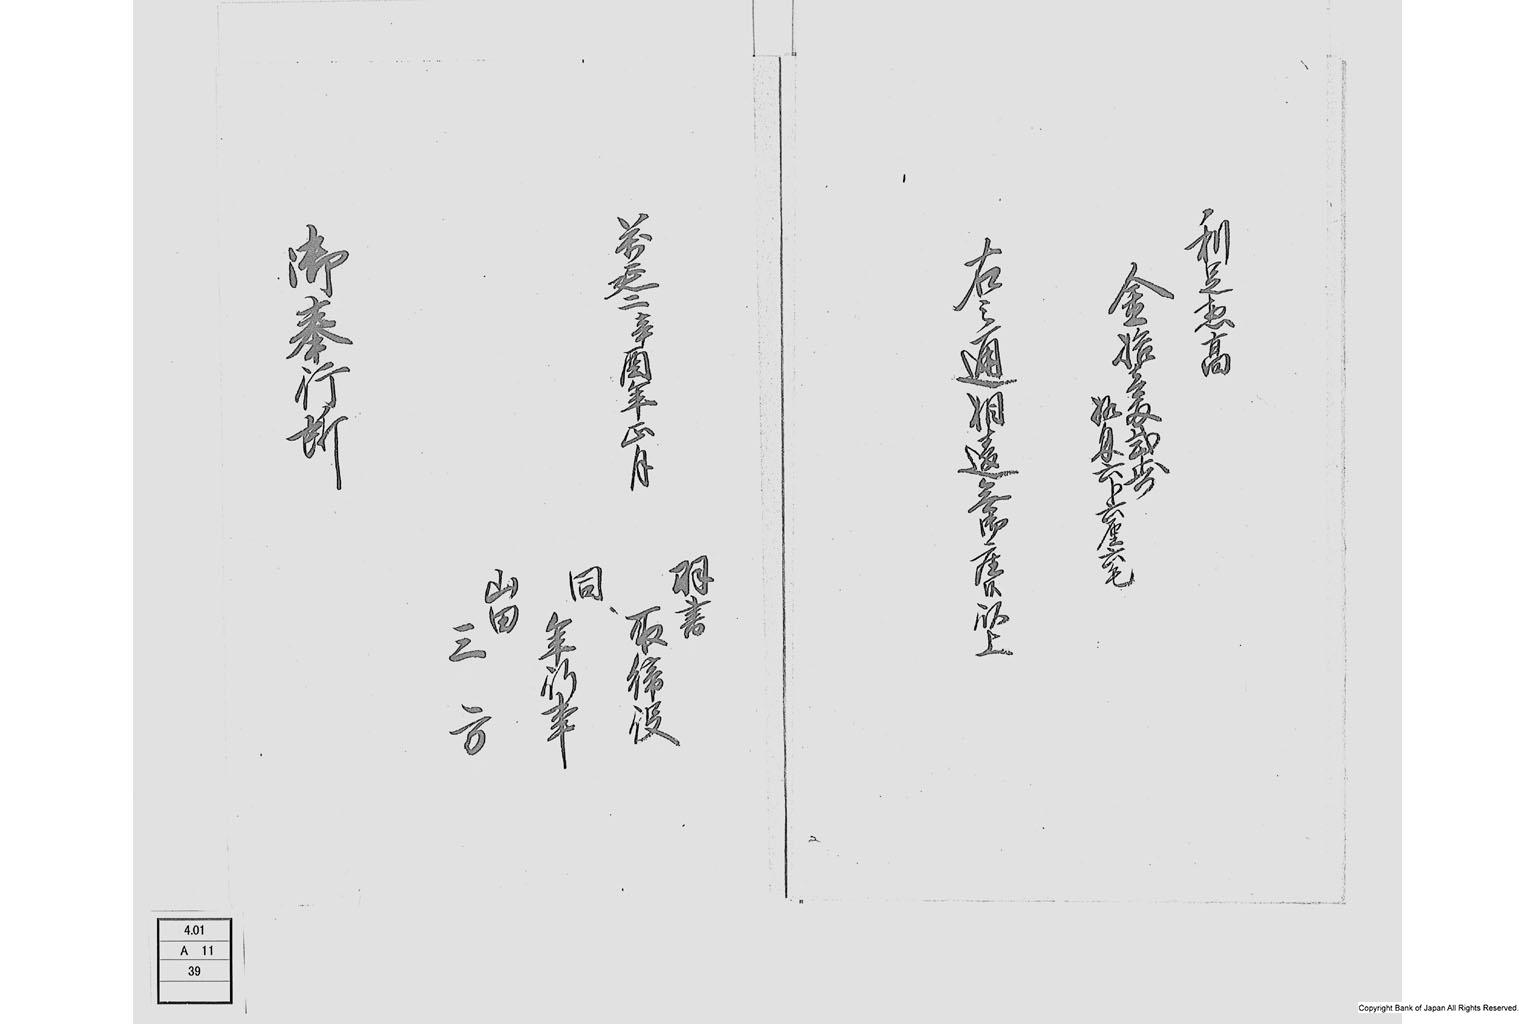 利足惣高
金拾壱両弐歩
銀五匁六分六厘六毛
右之通相違無御座候以上
萬延二辛酉年正月
羽書
取締役
同
年行事
山田
三方
御奉行所
4.01
A 11
39
Copyright Bank of Japan All Rights Reserved.